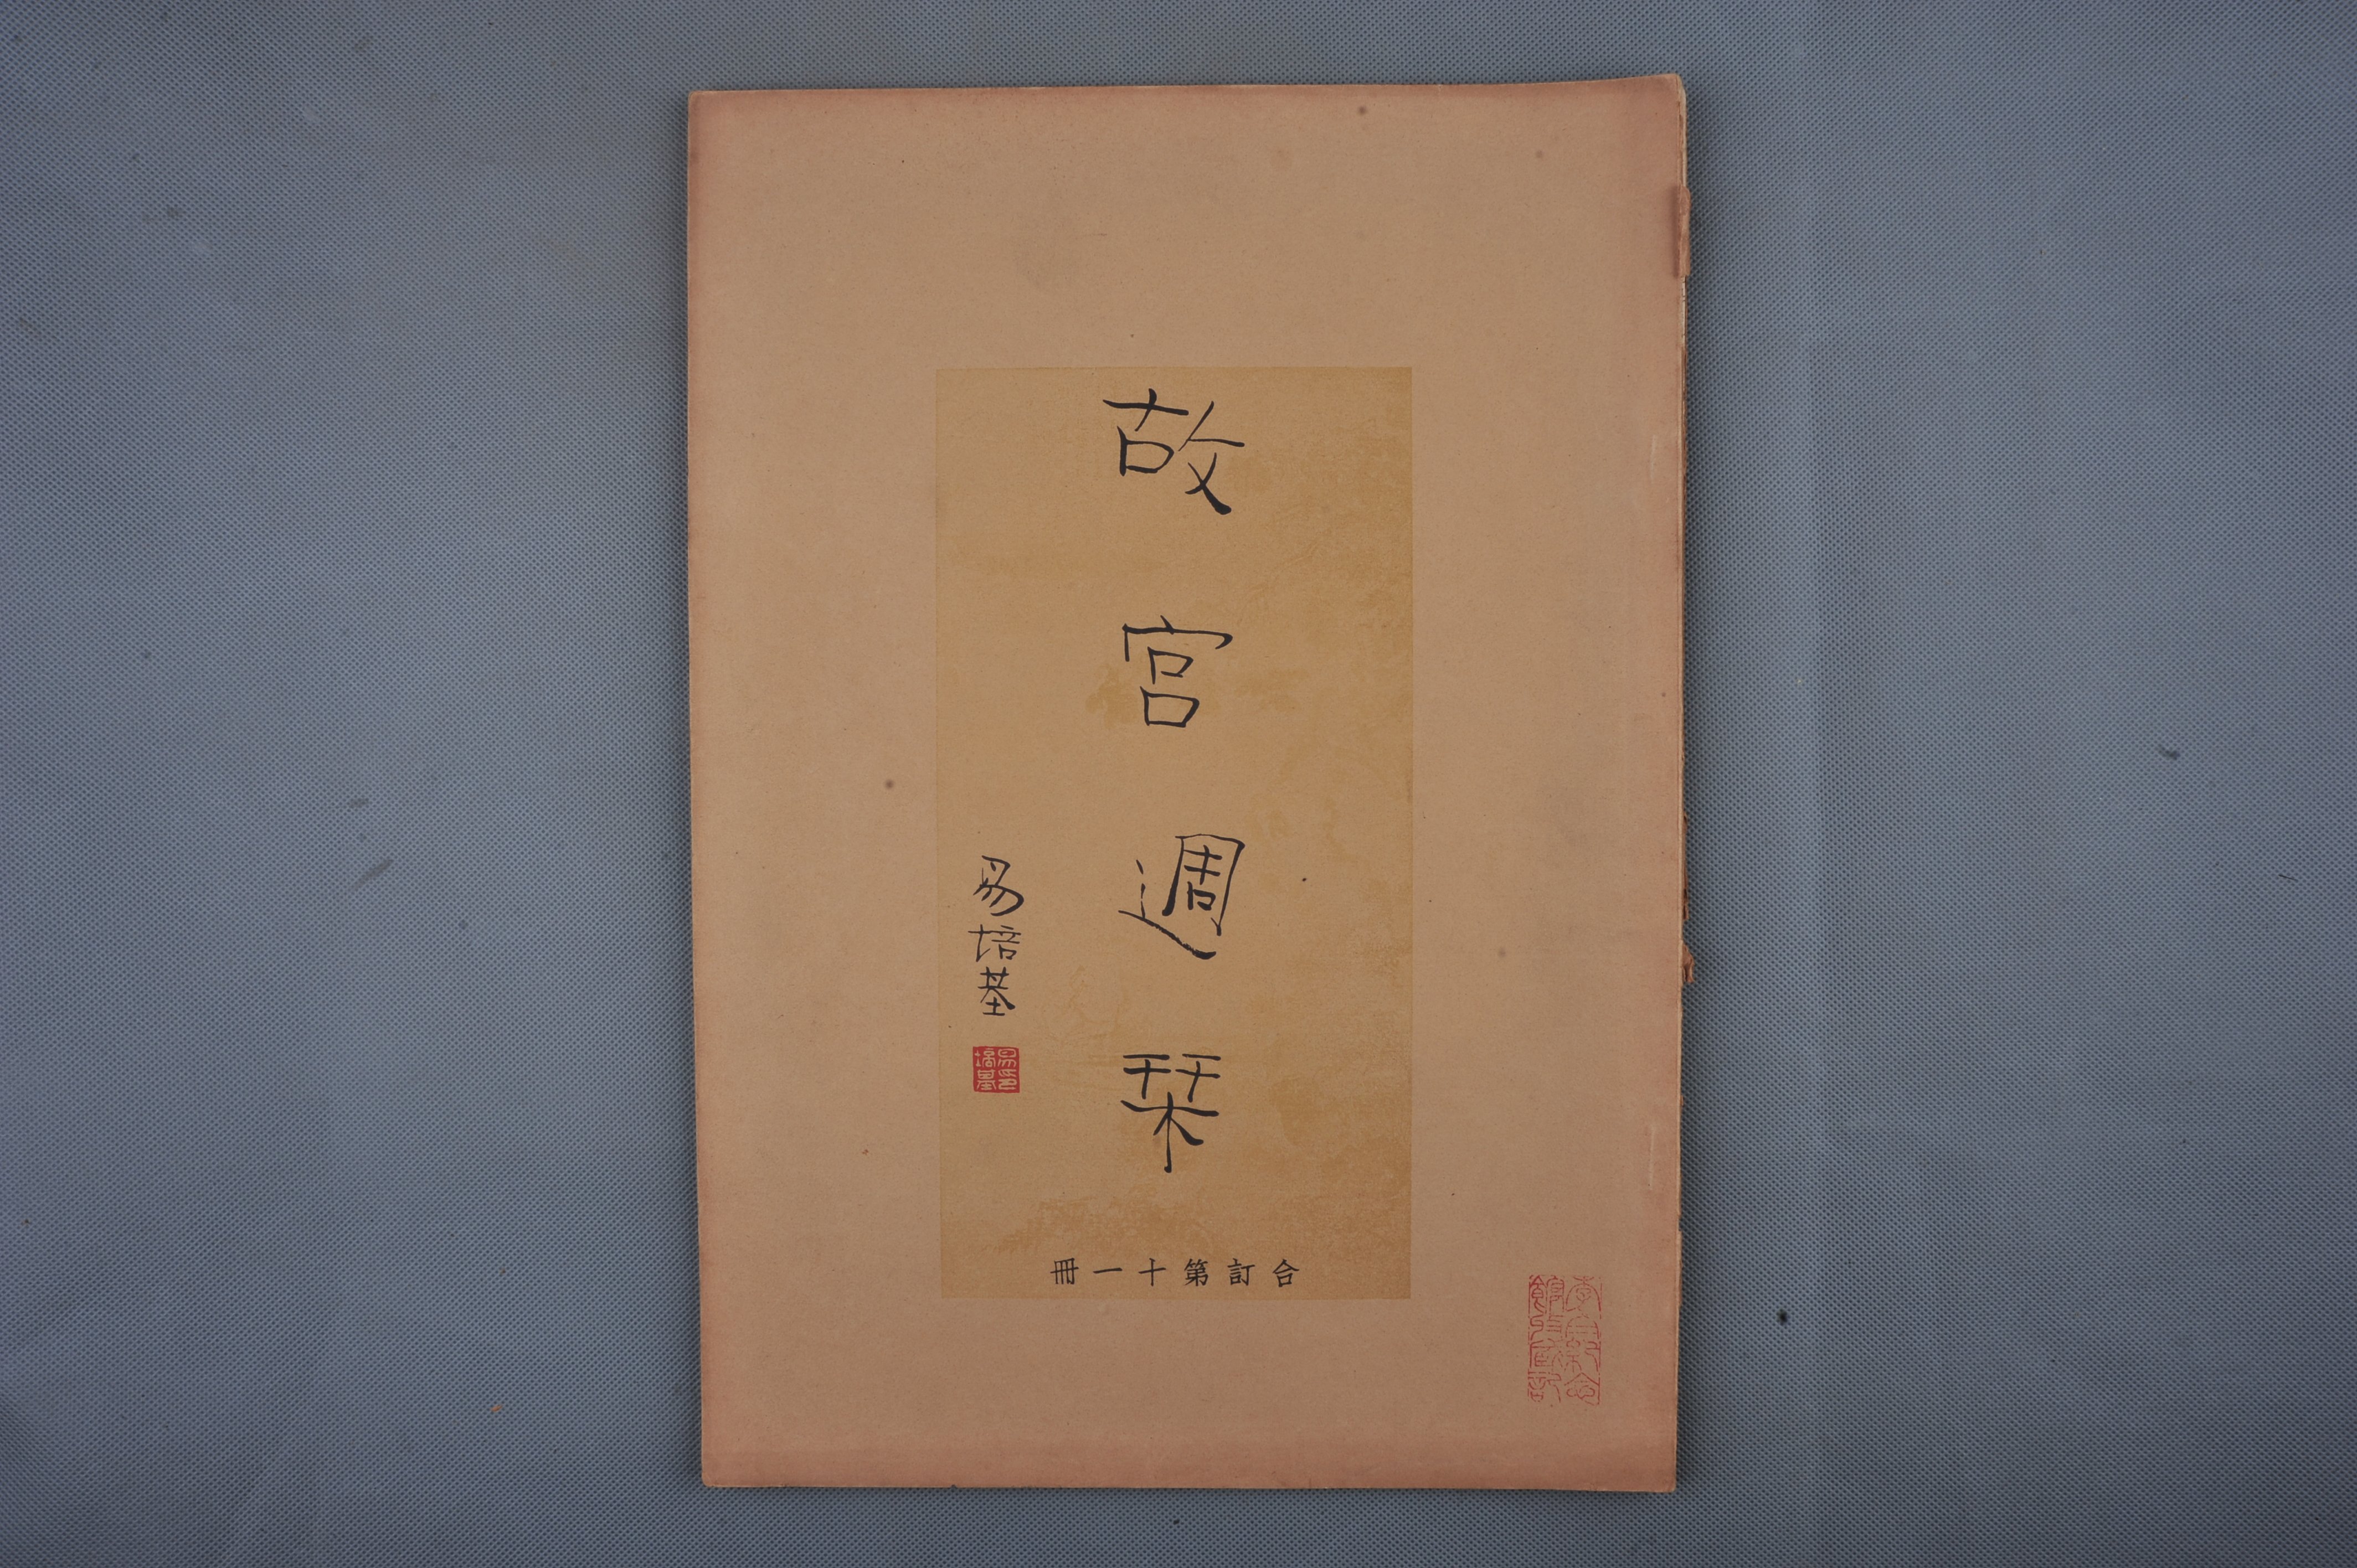 故宮週栞
易培基
易印培基
合訂第十一冊